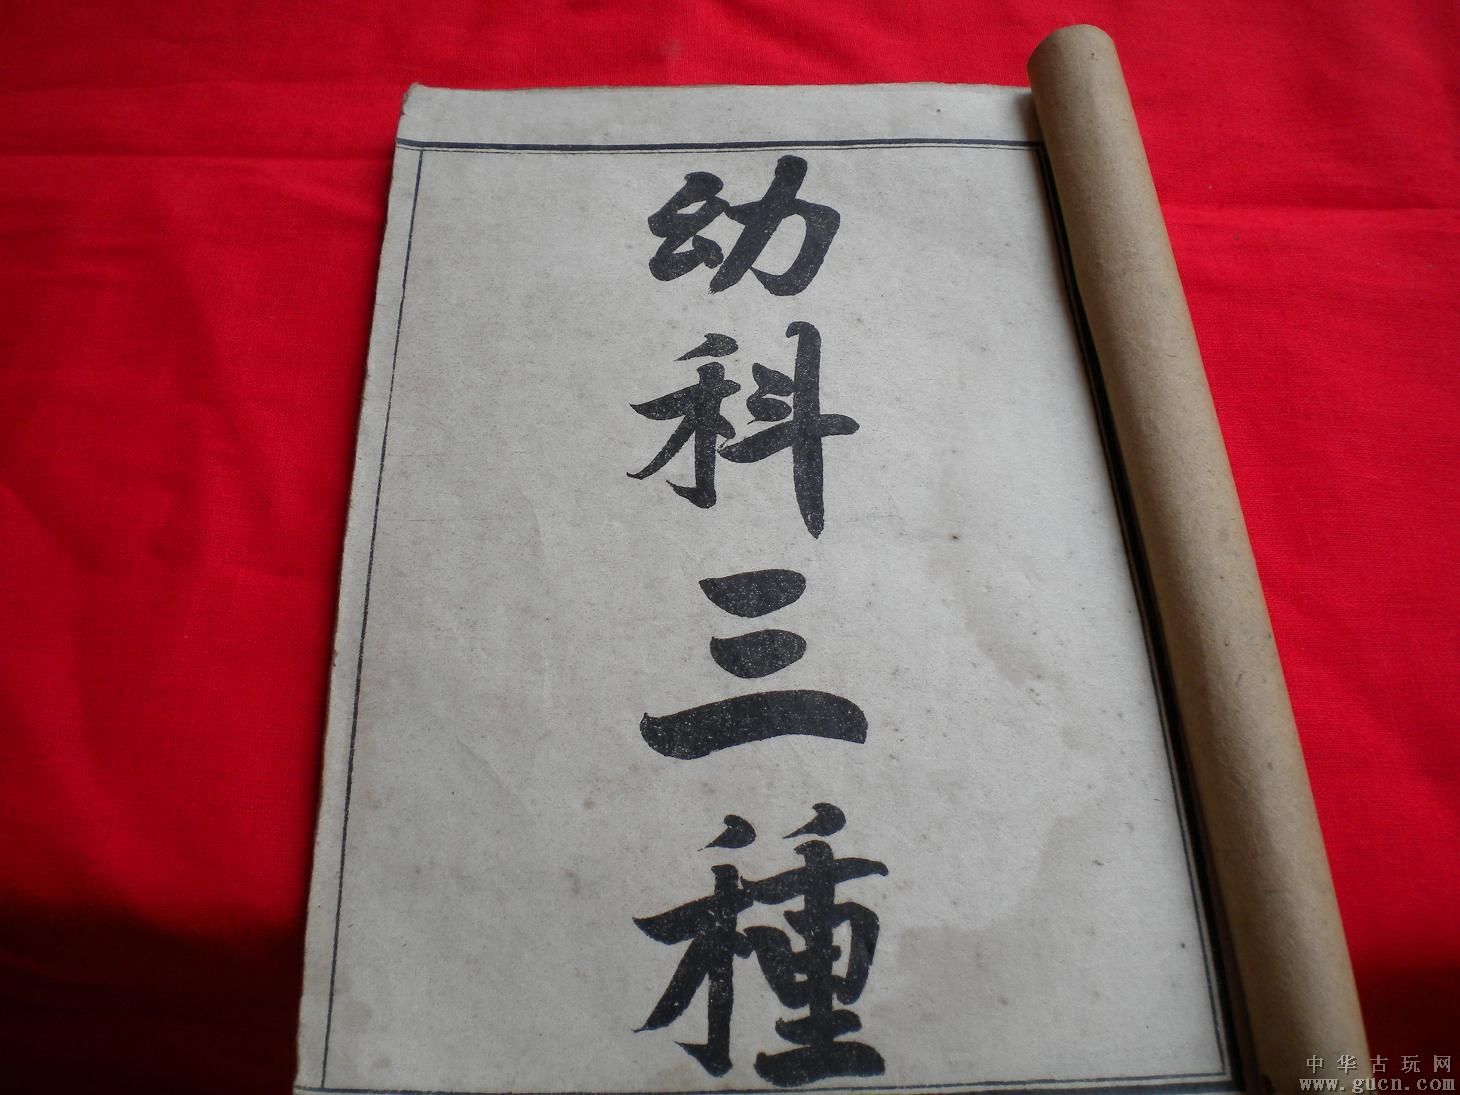 幼科三種
中华古玩网
www.gucn.com